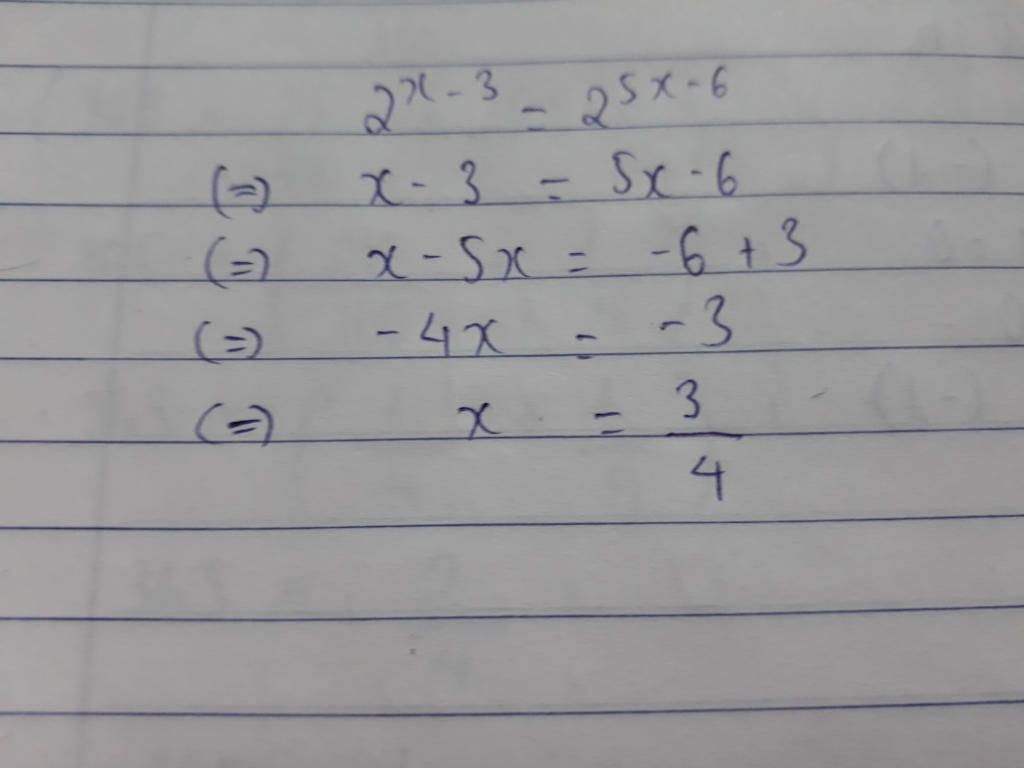 2^{x-3} = 2^{5x-6}
(=) x - 3 = 5x - 6
(=) x - 5x = -6 + 3
(=) -4x = -3
(=) x = \frac{3}{4}